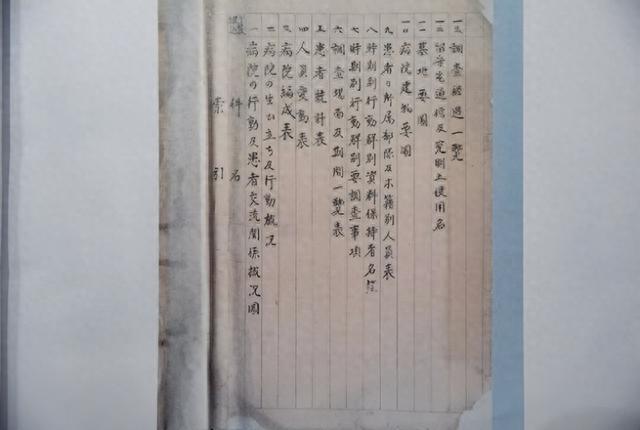 索引
件名
一 病院の行動及患者交流関係概況図
二 病院の生ひ立ち及行動概況
三 病院編成表
四 人員変動表
五 患者統計表
六 調査場面及期間一覧表
七 時期別行動要調査事項
八 時期別行動資料保持者名簿
九 患者の所属部隊及本籍別人員表
一〇 病院建物要図
一一 墓地要図
一二 留守宅通信及究明上使用名
一三 調査経過一覧